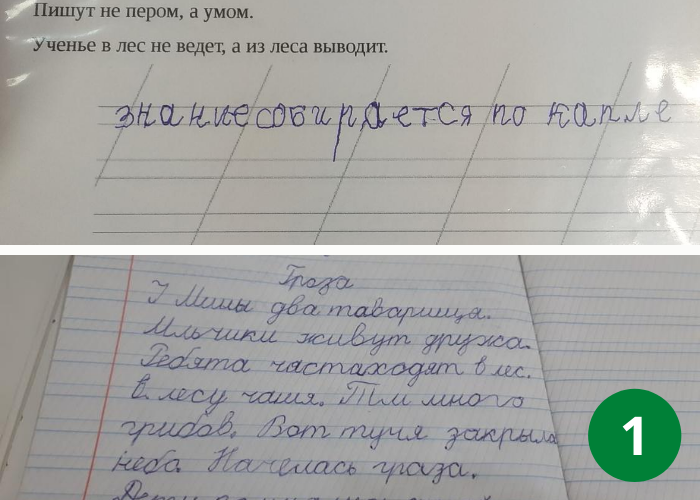 Пишут не пером, а умом.
Ученье в лес не ведет, а из леса выводит.
знание собирается по капле
Гроза
У Миши два таварища.
Мльчики живут дружа.
Ребята частаходят в лес.
В лесу чаша. Там много
грибов. Вот туча закрыла
неба. Началась граза.
1